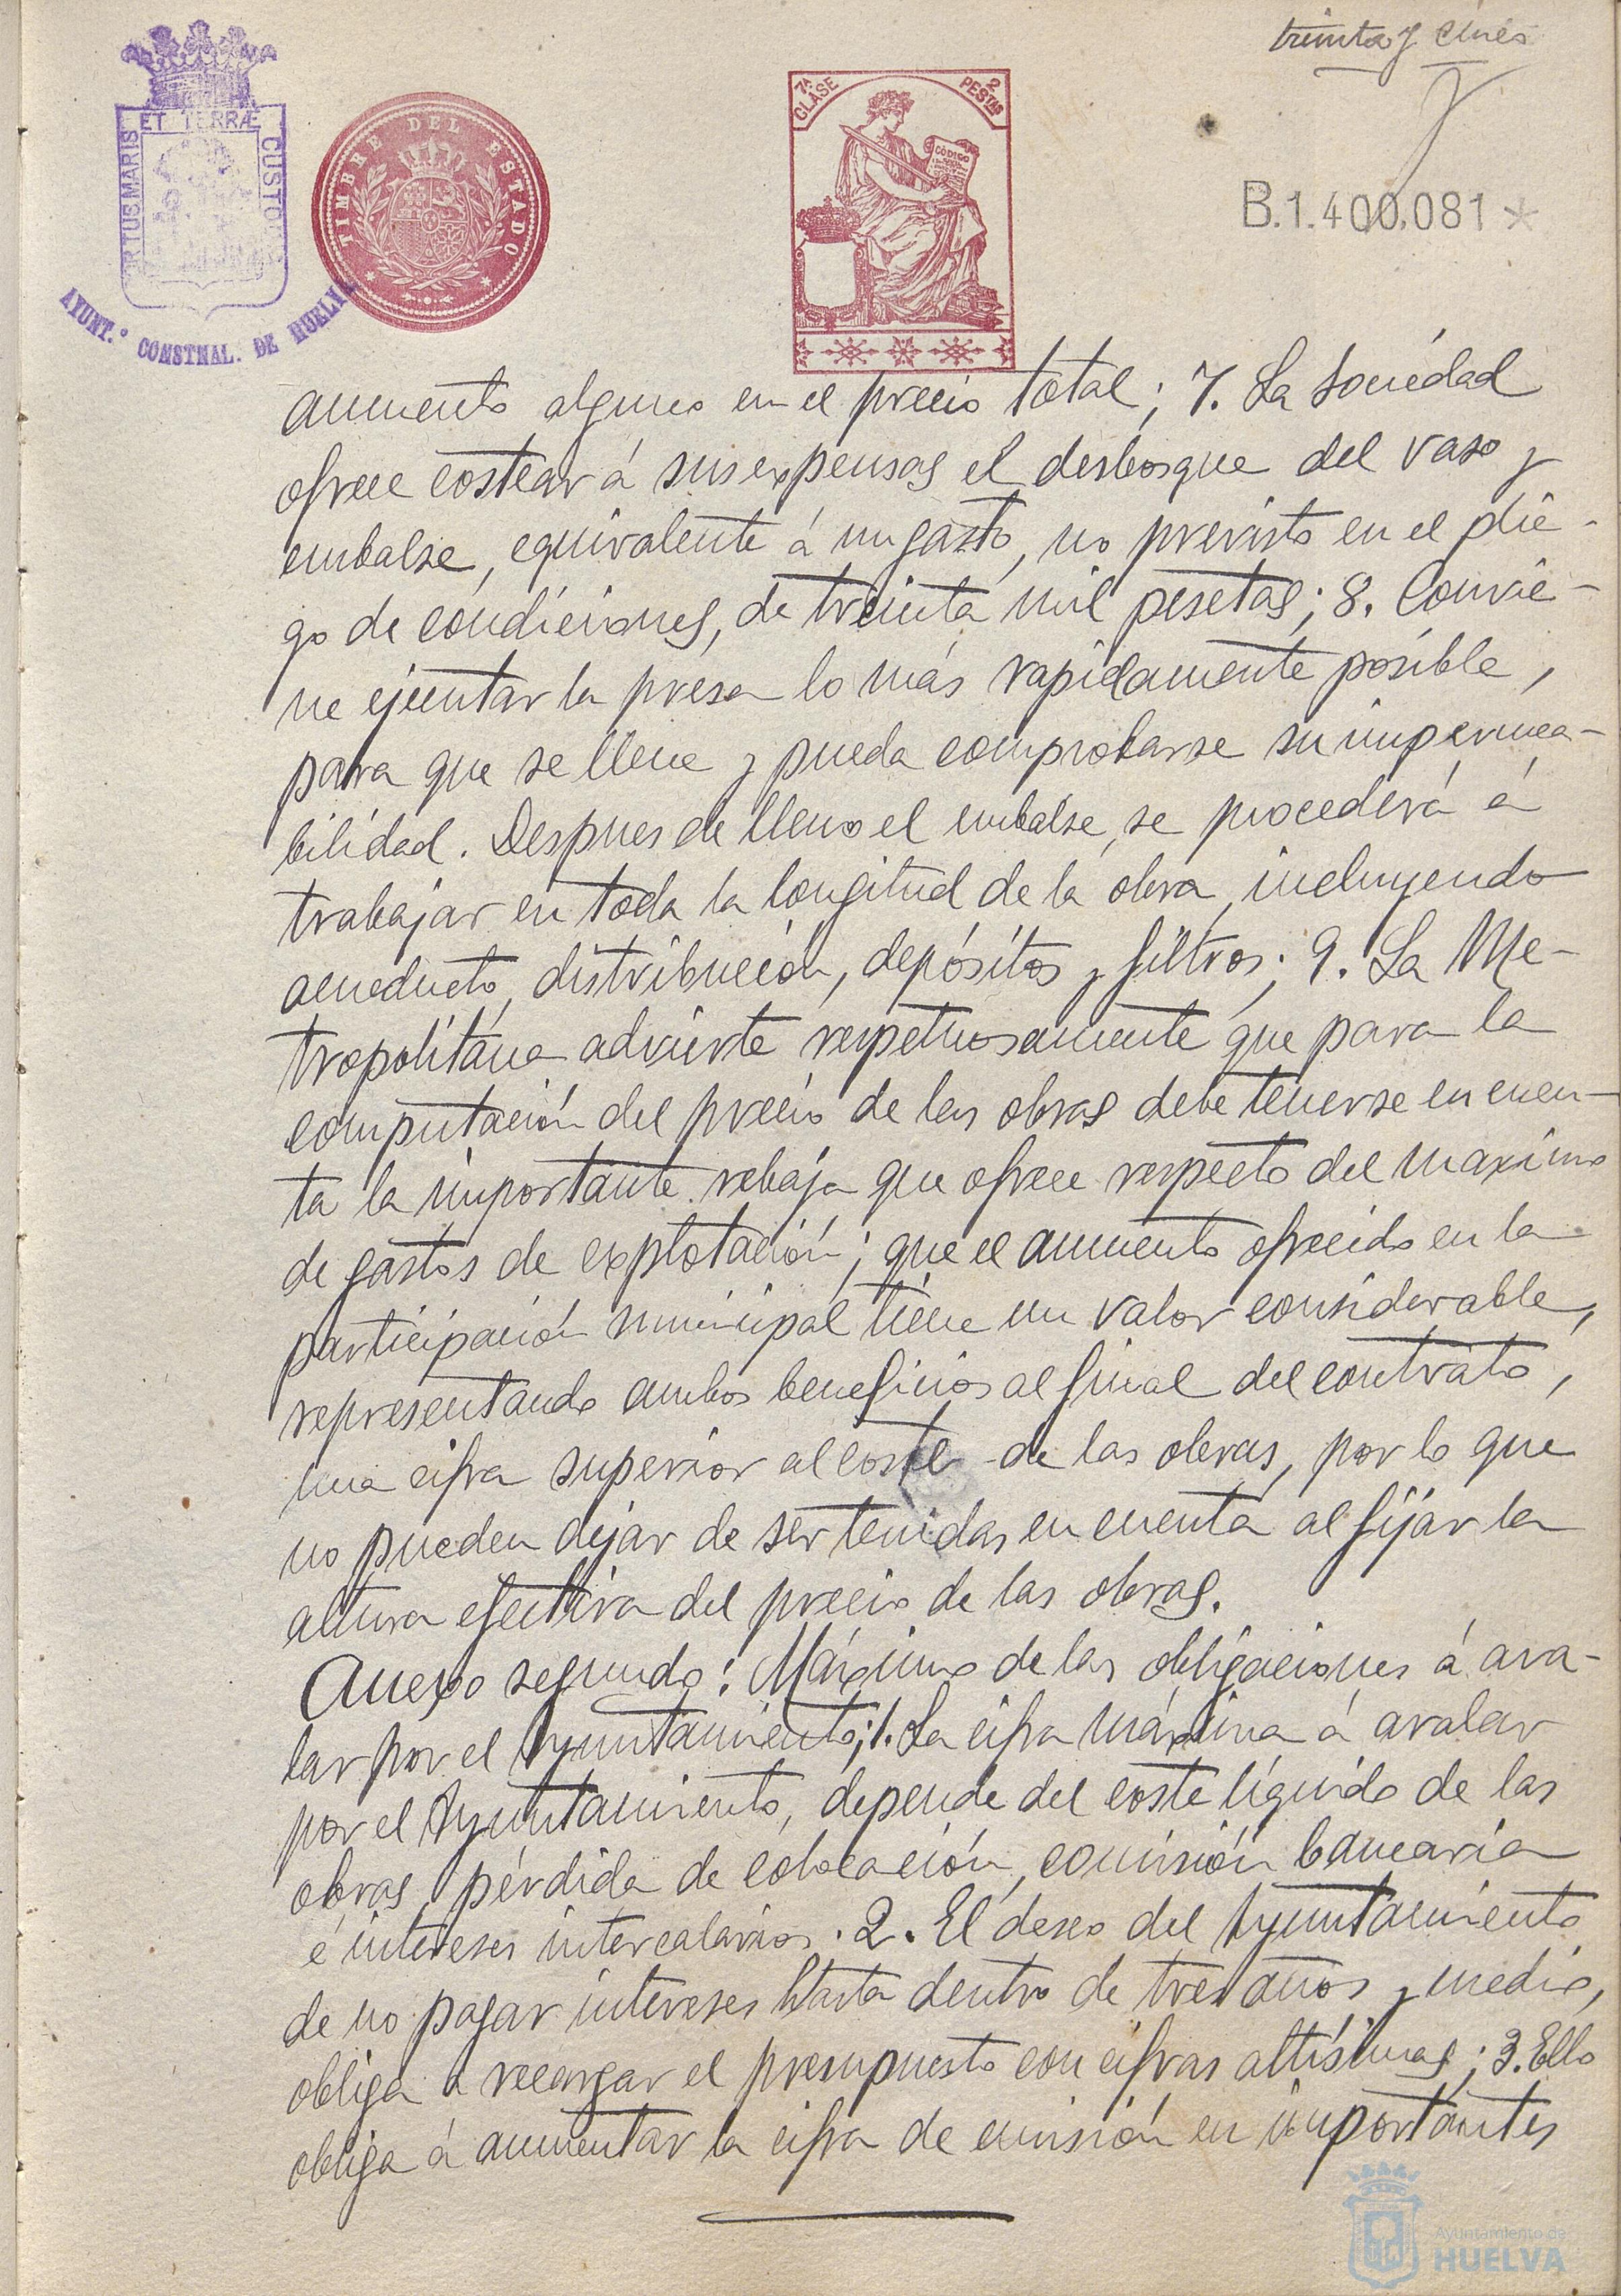 treinta y cinco
PORTUS MARIS ET TERRÆ CUSTODIA
AYUNT.º CONSTNAL. DE HUELVA
TIMBRE DEL ESTADO
7ª CLASE
2 PESTAS
CÓDIGO
B.1.400.081*
aumento alguno en el precio total; 7. La Sociedad
ofrece costear á sus expensas el desbosque del vaso y
embalse, equivalente á un gasto, no previsto en el plie-
go de condiciones, de treinta mil pesetas; 8. Convie-
ne ejecutar la presa lo más rapidamente posible,
para que se llene y pueda comprobarse su impermea-
bilidad. Despues de lleno el embalse, se procederá á
trabajar en toda la longitud de la obra, incluyendo
acueducto, distribución, depósitos y filtros; 9. La Me-
tropolitana advierte respetuosamente que para la
computación del precio de las obras debe tenerse en cuen-
ta la importante rebaja que ofrece respecto del maximo
de gastos de explotación; que el aumento ofrecido en la
participación municipal tiene un valor considerable,
representando ambos beneficios al final del contrato,
una cifra superior al coste de las obras, por lo que
no pueden dejar de ser tenidas en cuenta al fijar la
altura efectiva del precio de las obras.
Anexo segundo: Máximo de las obligaciones á ava-
lar por el Ayuntamiento; 1. La cifra máxima á avalar
por el Ayuntamiento, depende del coste líquido de las
obras, pérdida de colocación, comisión bancaria
é intereses intercalarios. 2. El deseo del Ayuntamiento
de no pagar intereses hasta dentro de tres años y medio,
obliga a recargar el presupuesto con cifras altísimas; 3. Ello
obliga á aumentar la cifra de emisión en importantes
Ayuntamiento de
HUELVA